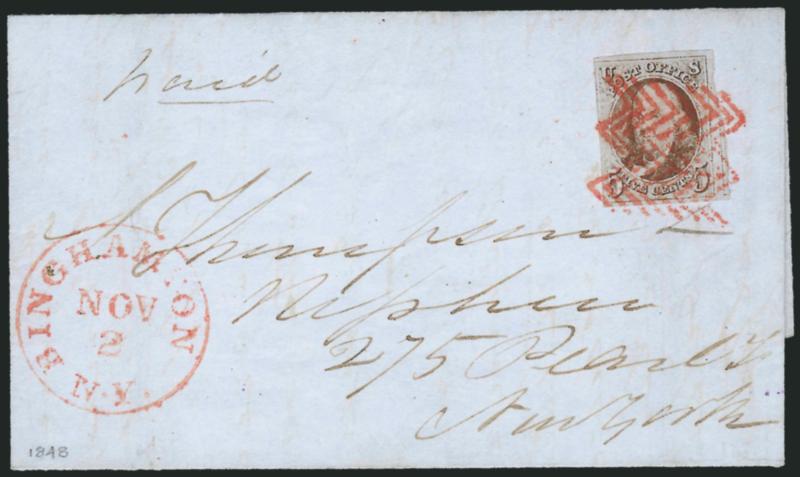 paid
U S
POST OFFICE
FIVE CENTS
5 5
Thompson
Nephew
275 Pearl St
New York
BINGHAMTON
NOV
2
N.Y.
1848